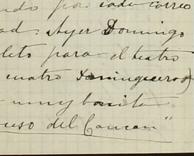 ndo por cada correo
ad: Ayer Domingo
leto para el teatro
cuatro Domingueros)
muy bonita
uso del Cancan"